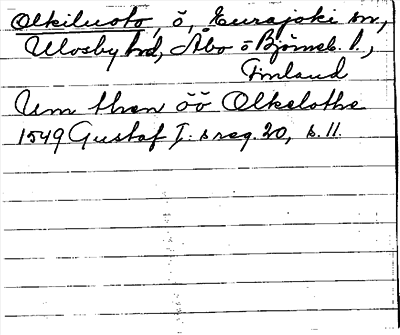 Olkiluoto, ö, Eurajoki sn,
Ulvsby hd, Åbo o Björneb. l.,
Finland
Um then öö Olkelotho
1549 Gustaf I:s reg. 20, s. 11.